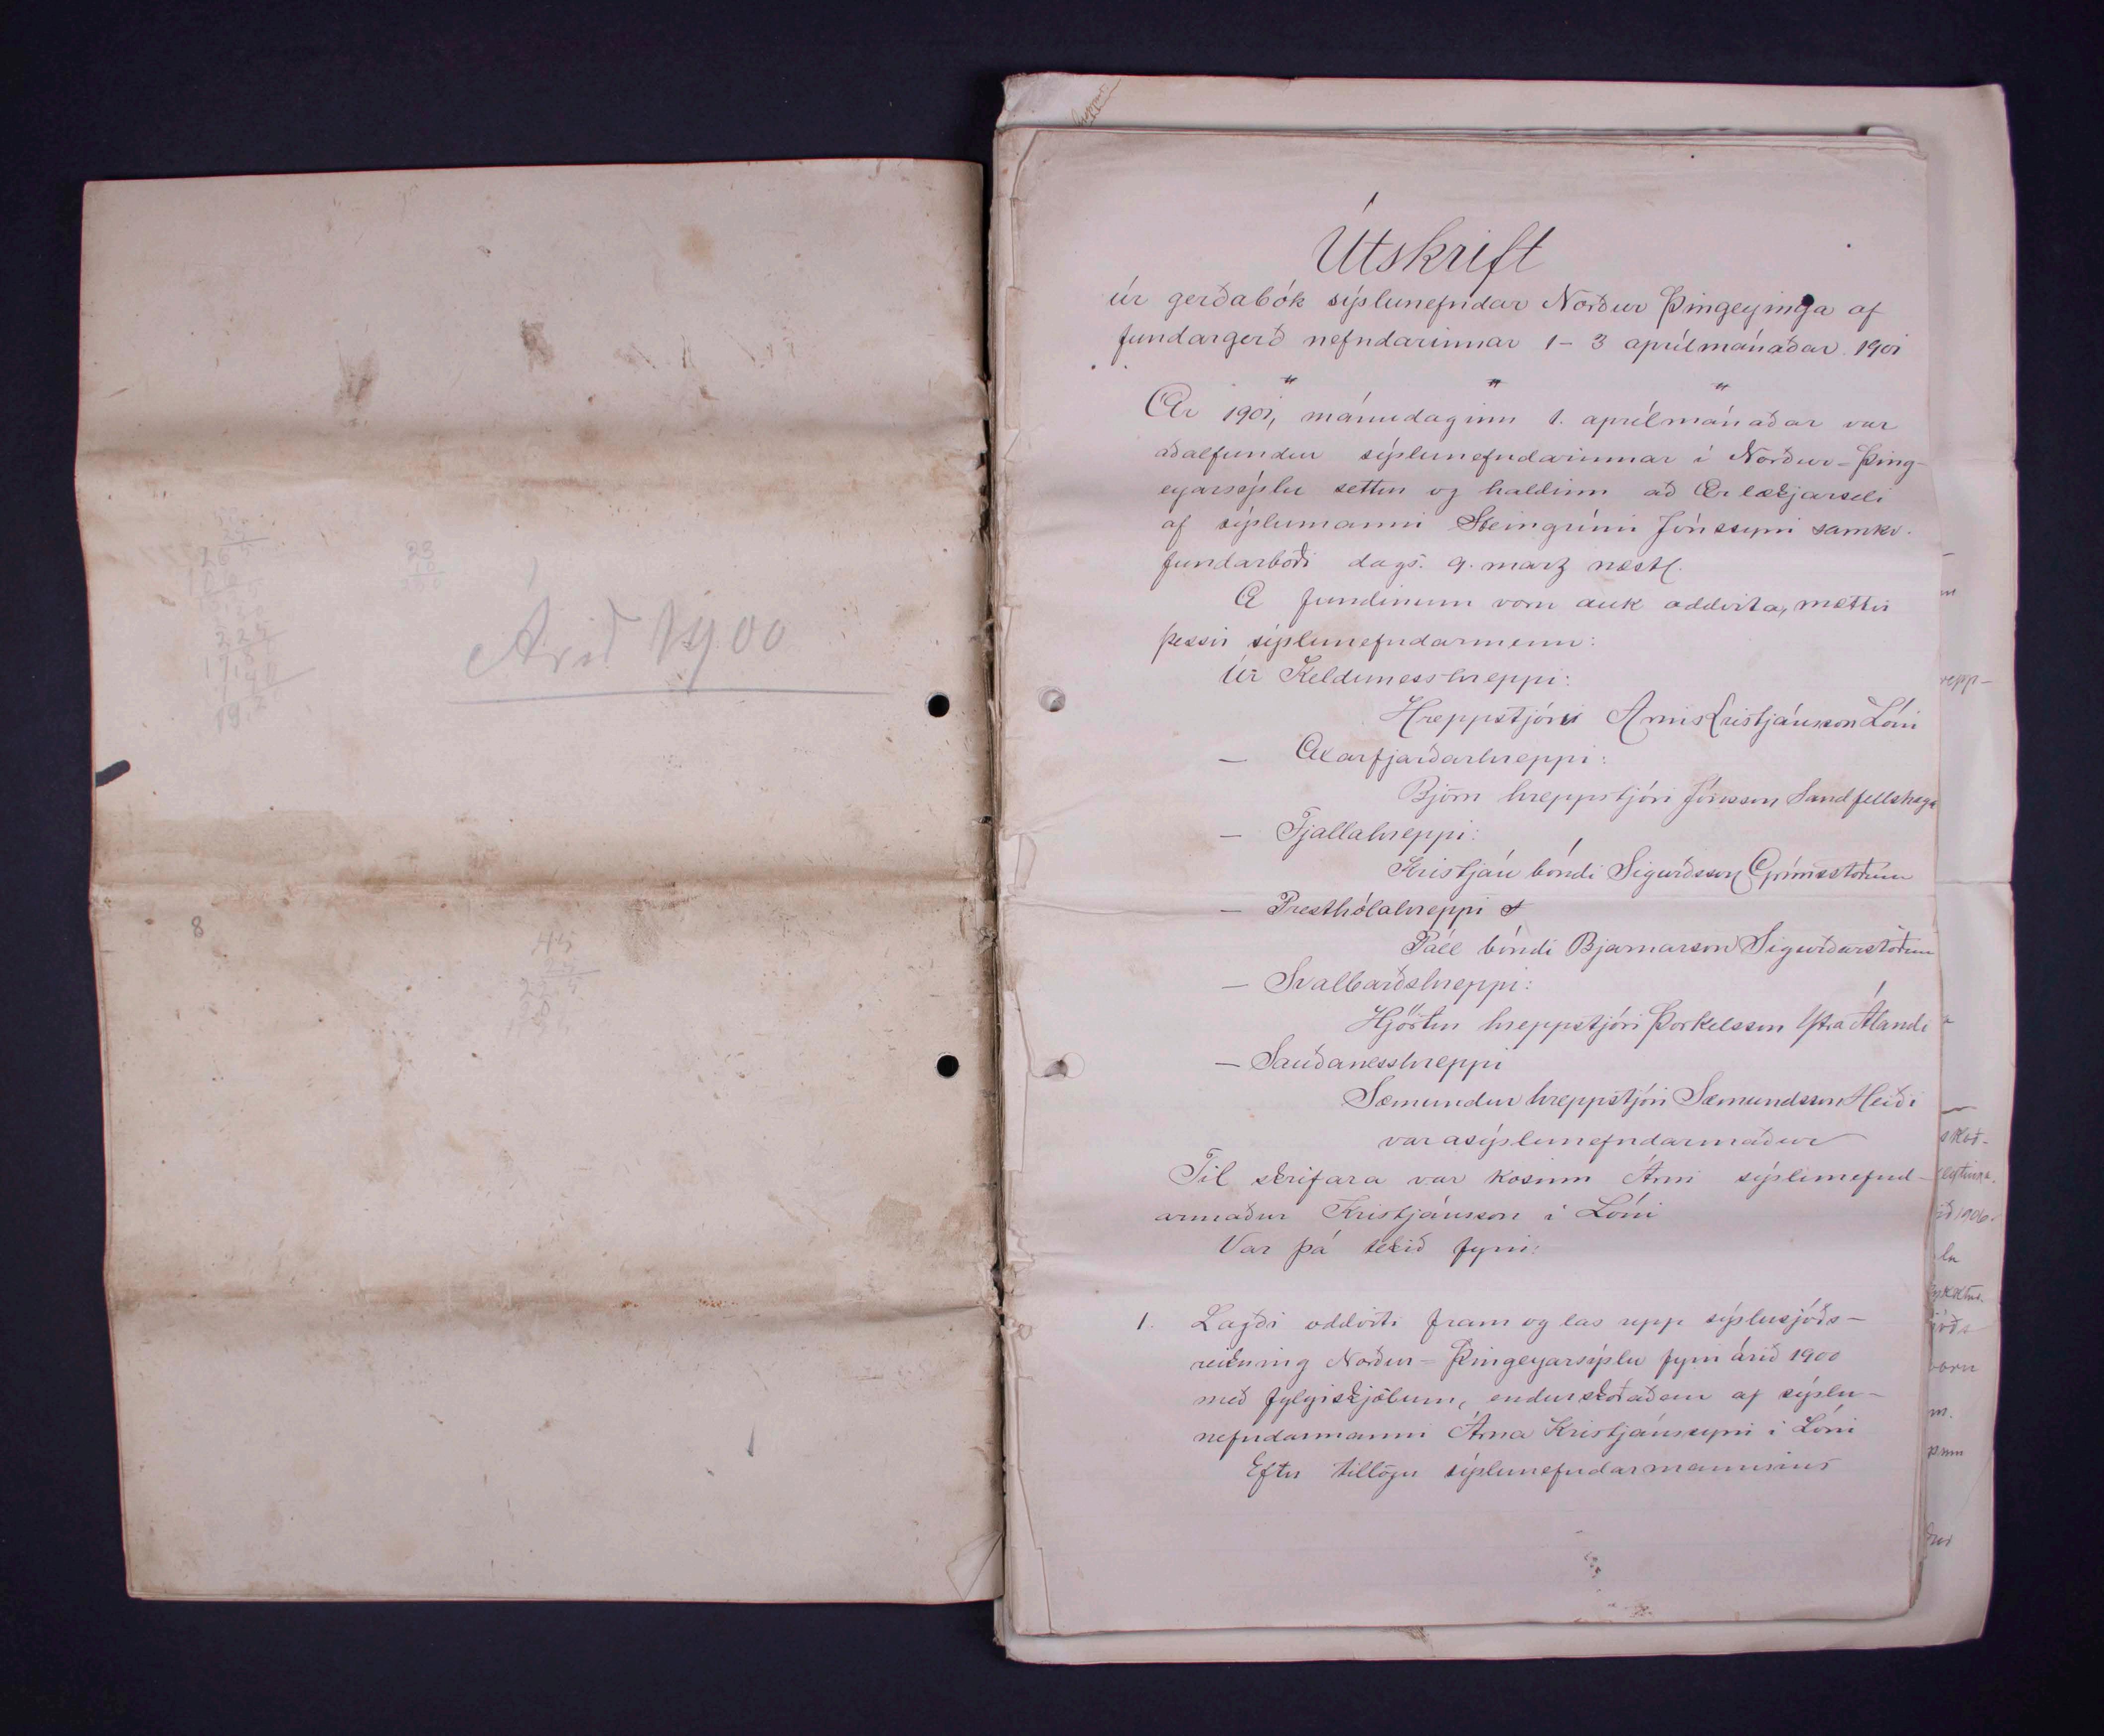 Árið 1900
8
Útskrift
úr gerðabók sýslunefndar Norður Þingeyinga af
fundargerð nefndarinnar 1-3 aprílmánaðar 1901
" " "
Ár 1901, mánudaginn 1. aprílmánaðar var
aðalfundur sýslunefndarinnar í Norður-Þing-
eyarsýslu settur og haldinn að Ærlækjarseli
af sýslumanni Steingrími Jónssyni samkv.
fundarboði dags. 9. marz næstl.
Á fundinum voru auk oddvita, mættir
þessir sýslunefndarmenn:
Úr Kelduness hreppi:
Hreppstjóri Árni Kristjánsson Lóni
— Axarfjarðarhreppi:
Björn hreppstjóri Jónsson Sandfellshaga
— Fjallahreppi:
Kristján bóndi Sigurðsson Grímsstöðum
— Presthólahreppi
Páll bóndi Bjarnarson Sigurðarstöðum
— Svalbarðshreppi:
Hjörtur hreppstjóri Þorkelsson Ytra Álandi
— Sauðaneshreppi
Sæmundur hreppstjóri Sæmundsson Heiði
varasýslunefndarmaður
Til skrifara var kosinn Árni sýslunefnd-
armaður Kristjánsson í Lóni
Var þá tekið fyrir:
1. Lagði oddviti fram og las upp sýslusjóðs-
reikning Norður-Þingeyarsýslu fyrir árið 1900
með fylgiskjölum, endurskoðaðan af sýslu-
nefndarmanni Árna Kristjánssyni í Lóni
Eftir tillögu sýslunefndarmannsins